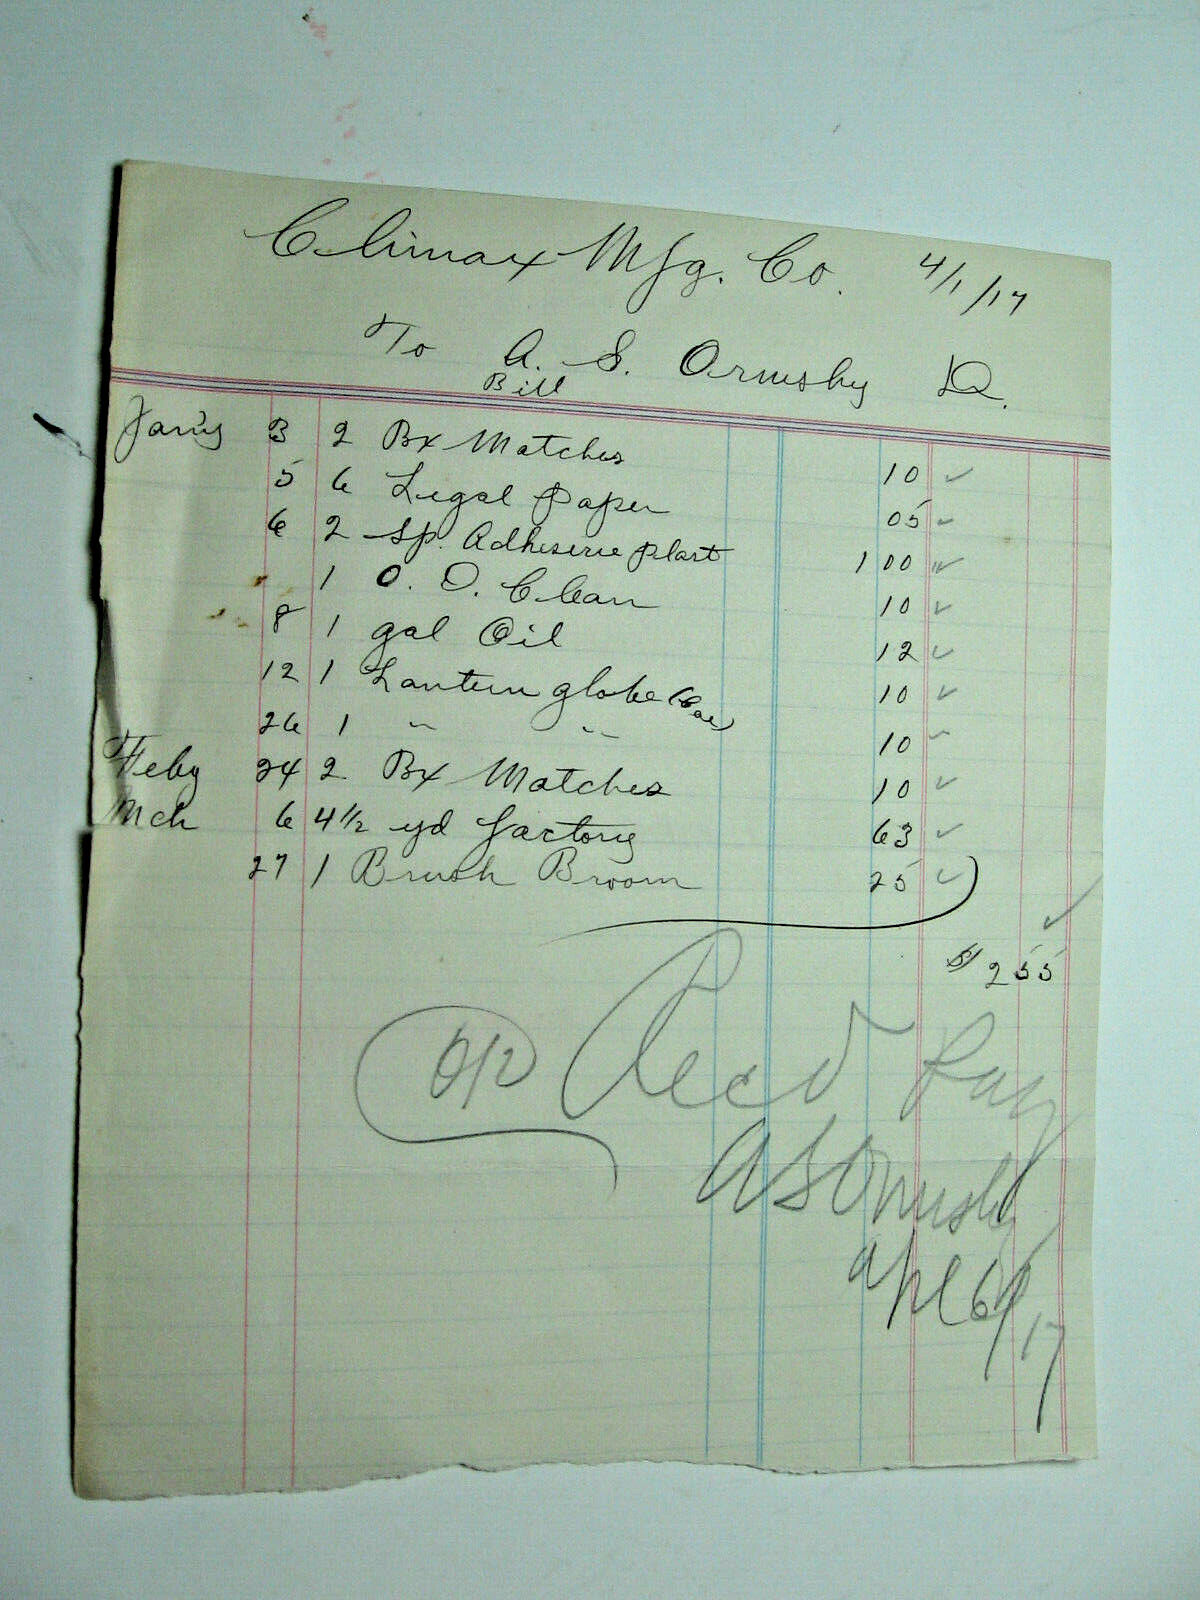 Climax Mfg. Co. 4/1/17
To A. S. Ormsby Dr.
Bill
Jan'y 3 2 Bx Matches 10
5 6 Legal paper 05
6 2 Sp. Adhiserie plast 1 00
1 O. D. Clean 10
8 1 gal Oil 12
12 1 Lantern globe 10
26 1 " " 10
Feby 24 2 Bx Matches 10
Mch 6 4 1/2 yd factory 63
27 1 Brush Broom 25
$ 2 55
Recd Pay
A S Ormsby
Apl 6/17